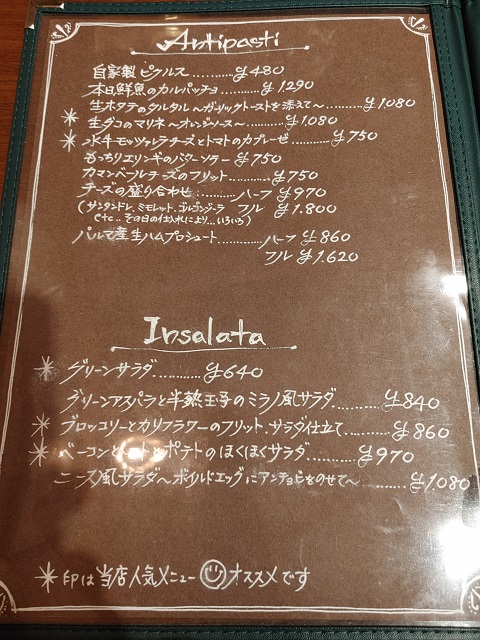 Antipasti
自家製ピクルス..........¥480
本日鮮魚のカルパッチョ..........¥1,290
生ホタテのタルタル〜ガーリックトーストを添えて〜..........¥1,080
＊生ダコのマリネ〜オレンジソース〜..........¥1,080
＊水牛モッツァレラチーズとトマトのカプレーゼ..........¥750
もっちりエリンギのバターソテー ¥750
カマンベールチーズのフリット..........¥750
チーズの盛り合わせ..........ハーフ ¥970
(サンタンドレ、ミモレット、ゴルゴンゾーラ フル ¥1,800
etc...その日の仕入れにより...いろいろ)
パルマ産生ハムプロシュート..........ハーフ ¥860
フル ¥1,620
Insalata
＊グリーンサラダ..........¥640
グリーンアスパラと半熟玉子のミラノ風サラダ..........¥840
＊ブロッコリーとカリフラワーのフリット、サラダ仕立て..........¥860
＊ベーコンとトマトとポテトのほくほくサラダ..........¥970
ニース風サラダ〜ボイルドエッグにアンチョビをのせて〜..........¥1,080
＊印は当店人気メニュー オススメです